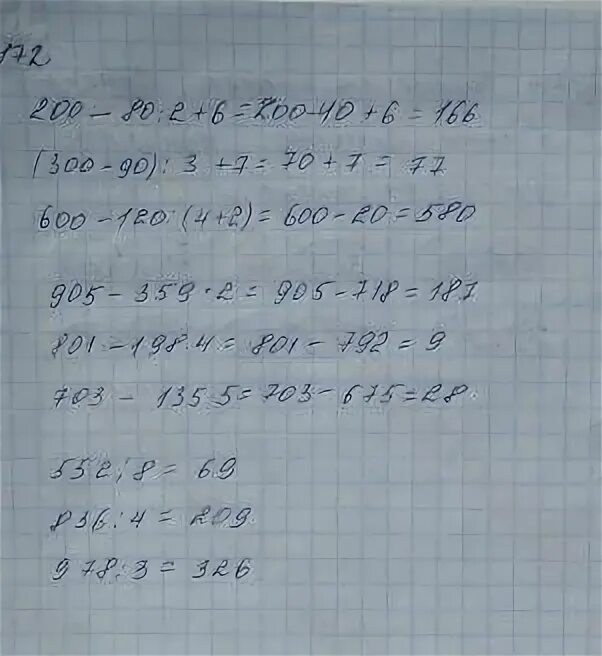 172
200 - 80 : 2 + 6 = 200 - 40 + 6 = 166
(300 - 90) : 3 + 7 = 70 + 7 = 77
600 - 120 : (4 + 2) = 600 - 20 = 580
905 - 359 · 2 = 905 - 718 = 187
801 - 198 · 4 = 801 - 792 = 9
703 - 135 · 5 = 703 - 675 = 28
552 : 8 = 69
836 : 4 = 209
978 : 3 = 326